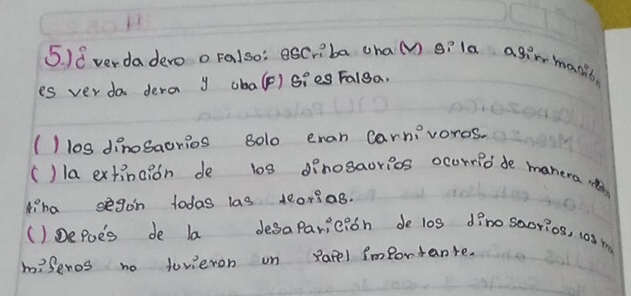 5.) ¿ verdadero o Falso: escriba una (V) si la afirmación
es verdadera y una (F) si es Falsa.
( ) los dinosaurios solo eran carnívoros.
( ) la extinción de los dinosaurios ocurrió de manera
tina según todas las teorías.
( ) Después de la desaparición de los dinosaurios, los ma
míferos no tuvieron un papel importante.